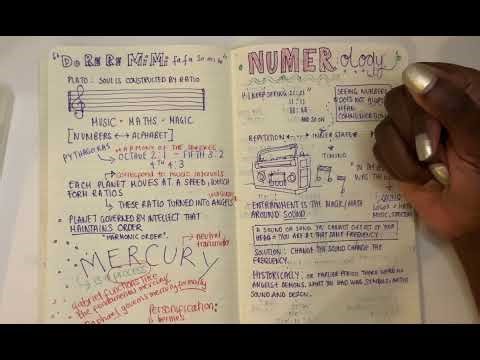 "Do Re Re Mi Mi fa fa so so la"
PLATO: SOUL IS CONSTRUCTED BY RATIO
MUSIC - MATHS - MAGIC
[NUMBERS ↔ ALPHABET]
PYTHAGORAS → HARMONY OF THE SPHERES
OCTAVE 2:1 — FIFTH 3:2
4TH 4:3
correspond to music intervals
EACH PLANET MOVES AT A SPEED, WHICH
FORM RATIOS
→ THESE RATIO TURNED INTO ANGELS
PLANET GOVERNED BY INTELLECT THAT
MAINTAINS ORDER
"HARMONIC ORDER"
neutral
MERCURY
is a process
Gabriel functions like
the fundamental mercury
Raphael governs mercury formally
Personification:
is hermes
NUMER-ology
"I KEEP SEEING 21:21"
11:11
AND SO ON
SEEING NUMBERS
DOES NOT ALWAYS
MEAN
COMMUNICATION
REPETITION
INNER STATE
TUNING
WAS THE
MUSIC,
ENTRAINMENT IS THE MAGIK/MATH
AROUND SOUND
A SOUND OR SONG YOU CANNOT GET OUT OF YOUR
HEAD = YOU ARE AT THAT SAME FREQUENCY
SOLUTION: CHANGE THE SOUND CHANGE THE
FREQUENCY.
HISTORICALLY: OR EARLIER PERIOD THERE WERE NO
ANGELS & DEMONS. WHAT YOU HAD WAS SYMBOLS
SOUND AND DESIGN.